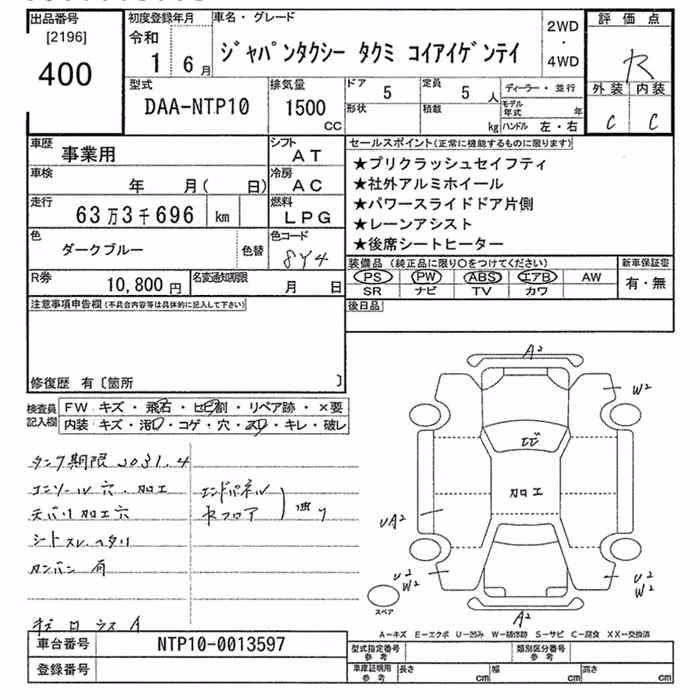 出品番号 初度登録年月 車名・グレード 2WD・4WD 評価点
[2196] 令和 ジャパンタクシー タクミ コイアイゲンテイ R
400 1 6月 外装 内装
型式 排気量 ドア 5 定員 5人 ディーラー・並行 C C
DAA-NTP10 1500 CC 形状 積載 kg モデル年式 年
ハンドル 左・右
車歴 事業用 シフト AT セールスポイント(正常に機能するものに限ります)
車検 年 月( 日) 冷房 AC ★プリクラッシュセイフティ
★社外アルミホイール
走行 63万3千696 km 燃料 LPG ★パワースライドドア片側
★レーンアシスト
色 ダークブルー 色替 色コード 8Y4 ★後席シートヒーター
装備品(純正品に限り○をつけてください) 新車保証書
R券 10,800円 名変通知期限 月 日 PS PW ABS エアB AW 有・無
SR ナビ TV カワ
注意事項申告欄(不具合内容等は具体的に記入して下さい) 後日品
修復歴 有〔箇所 〕
検査員記入欄 FW キズ・飛石・ヒビ割・リペア跡・×要
内装 キズ・汚れ・コゲ・穴・スレ・キレ・破レ
A2
W2
ヒビ
加工
UA2
U2
W2
U2
W2
A2
スペア
タンク期限 2031.4
コンソール穴・加工 エンドパネル
天バリ加工穴
シートスレ・ヘタリ
カンバン有
A-キズ E-エクボ U-凹み W-補修跡 S-サビ C-腐食 XX-交換済
車台番号 NTP10-0013597 型式指定番号 参考 類別区分番号 参考
登録番号 車庫証明用 参考 長さ cm 幅 cm 高さ cm